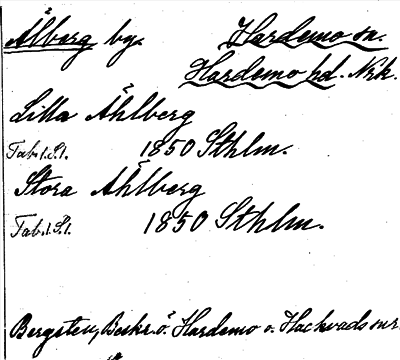 Ålberg by. Hardemo sn.
Hardemo hd. Nrk.
Lilla Åhlberg
Tab. l. S. 1. 1850 Sthlm.
Stora Åhlberg
Tab. l. S. 1. 1850 Sthlm.
Bergsten, Beskr. ö. Hardemo o. Hackvads snr